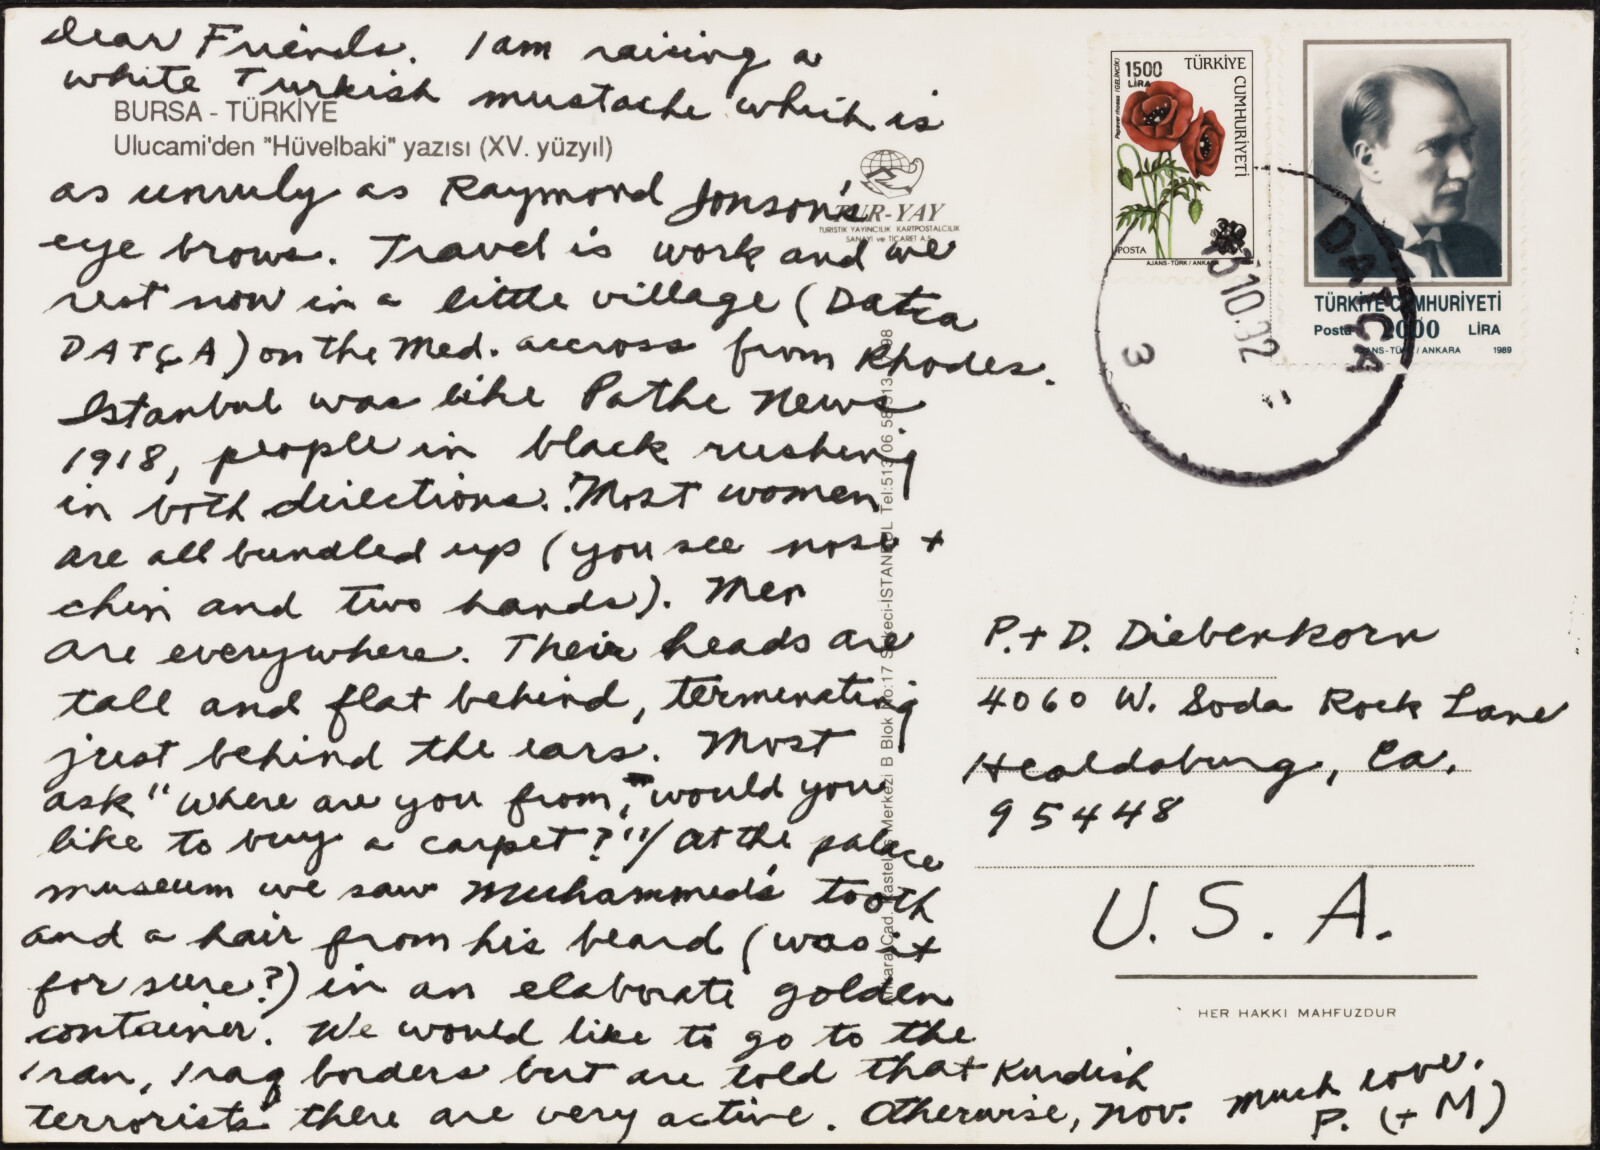 Dear Friends. I am raising a
white Turkish mustache which is
BURSA - TÜRKİYE
Ulucami'den "Hüvelbaki" yazısı (XV. yüzyıl)
as unruly as Raymond Jonson's
eye brows. Travel is work and we
rest now in a little village (Datca
DATÇA) on the Med. accross from Rhodes.
Istanbul was like Pathe News
1918, people in black rushing
in both directions. Most women
are all bundled up (you see nose +
chin and two hands). Men
are everywhere. Their heads are
tall and flat behind, terminating
just behind the ears. Most
ask "where are you from, would you
like to buy a carpet?"/ At the palace
museum we saw Muhammed's tooth
and a hair from his beard (was it
for sure?) in an elaborate golden
container. We would like to go to the
Iran, Iraq borders but are told that Kurdish
terrorists there are very active. Otherwise, Nov. Much love.
P. (+ M)
TUR-YAY
TURISTIK YAYINCILIK KARTPOSTALCILIK
SANAYİ ve TİCARET A.Ş.
Ankara Cad. Merkezi B Blok No:17 Sirkeci-İSTANBUL Tel:513 06 58
1500
LİRA
TÜRKİYE CUMHURİYETİ
POSTA
AJANS-TÜRK / ANKARA
TÜRKİYE CUMHURİYETİ
Posta 2000 LİRA
AJANS-TÜRK / ANKARA 1989
DATÇA
10.92
3
P. + D. Diebenkorn
4060 W. Soda Rock Lane
Healdsburg, Ca.
95448
U.S.A.
HER HAKKI MAHFUZDUR